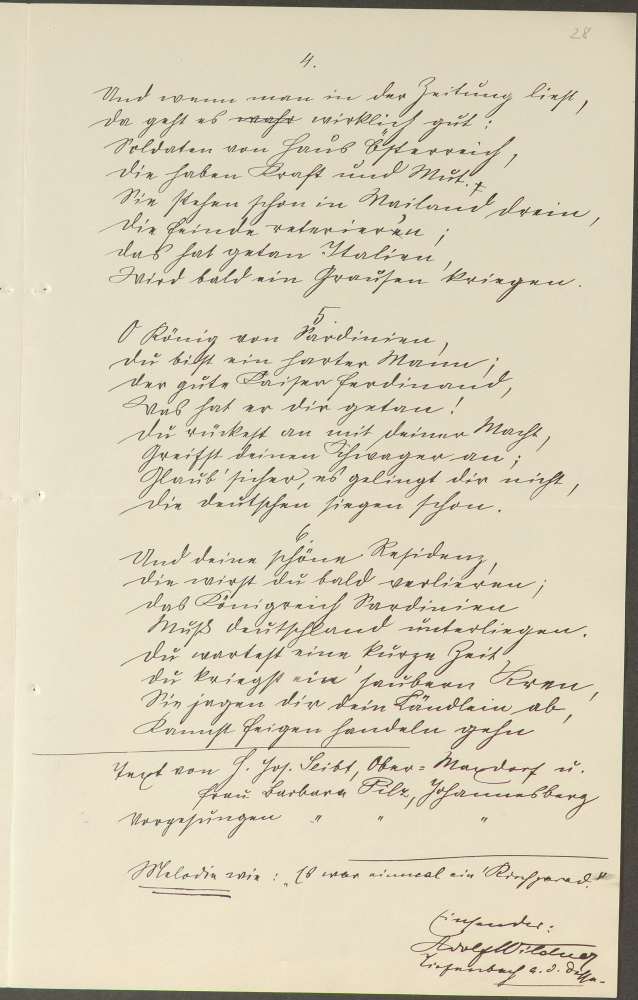 28
4.
Und wenn man in der Zeitung liest,
Da geht es wahr wirklich gut:
Soldaten von Haus Österreich,
Die haben Kraft und Mut.
Sie stehen schon in Mailand drein,
Die Feinde reterieren;
Das hat getan Italien,
Wird bald ein Grausen kriegen.
5.
O König von Sardinien,
Du bist ein harter Mann;
Der gute Kaiser Ferdinand,
Was hat er dir getan!
Du rückest an mit deiner Macht,
Greifst deinen Schwager an;
Glaub' sicher, es gelingt dir nicht,
Die Deutschen siegen schon.
6.
Und deine schöne Residenz,
Die wirst du bald verlieren;
Das Königreich Sardinien
Muß Deutschland unterliegen.
Du wartest eine kurze Zeit,
Du kriegst ein' saubern Kren,
Sie jagen dir dein Ländlein ab,
Kannst Feigen handeln gehn
Text von H. Jos. Seibt, Ober-Maxdorf u.
Frau Barbara Pilz, Johannesberg
Vorgesungen " " "
Melodie wie: „Es war einmal ein
Einsender:
Adolf Wildner
a. d.